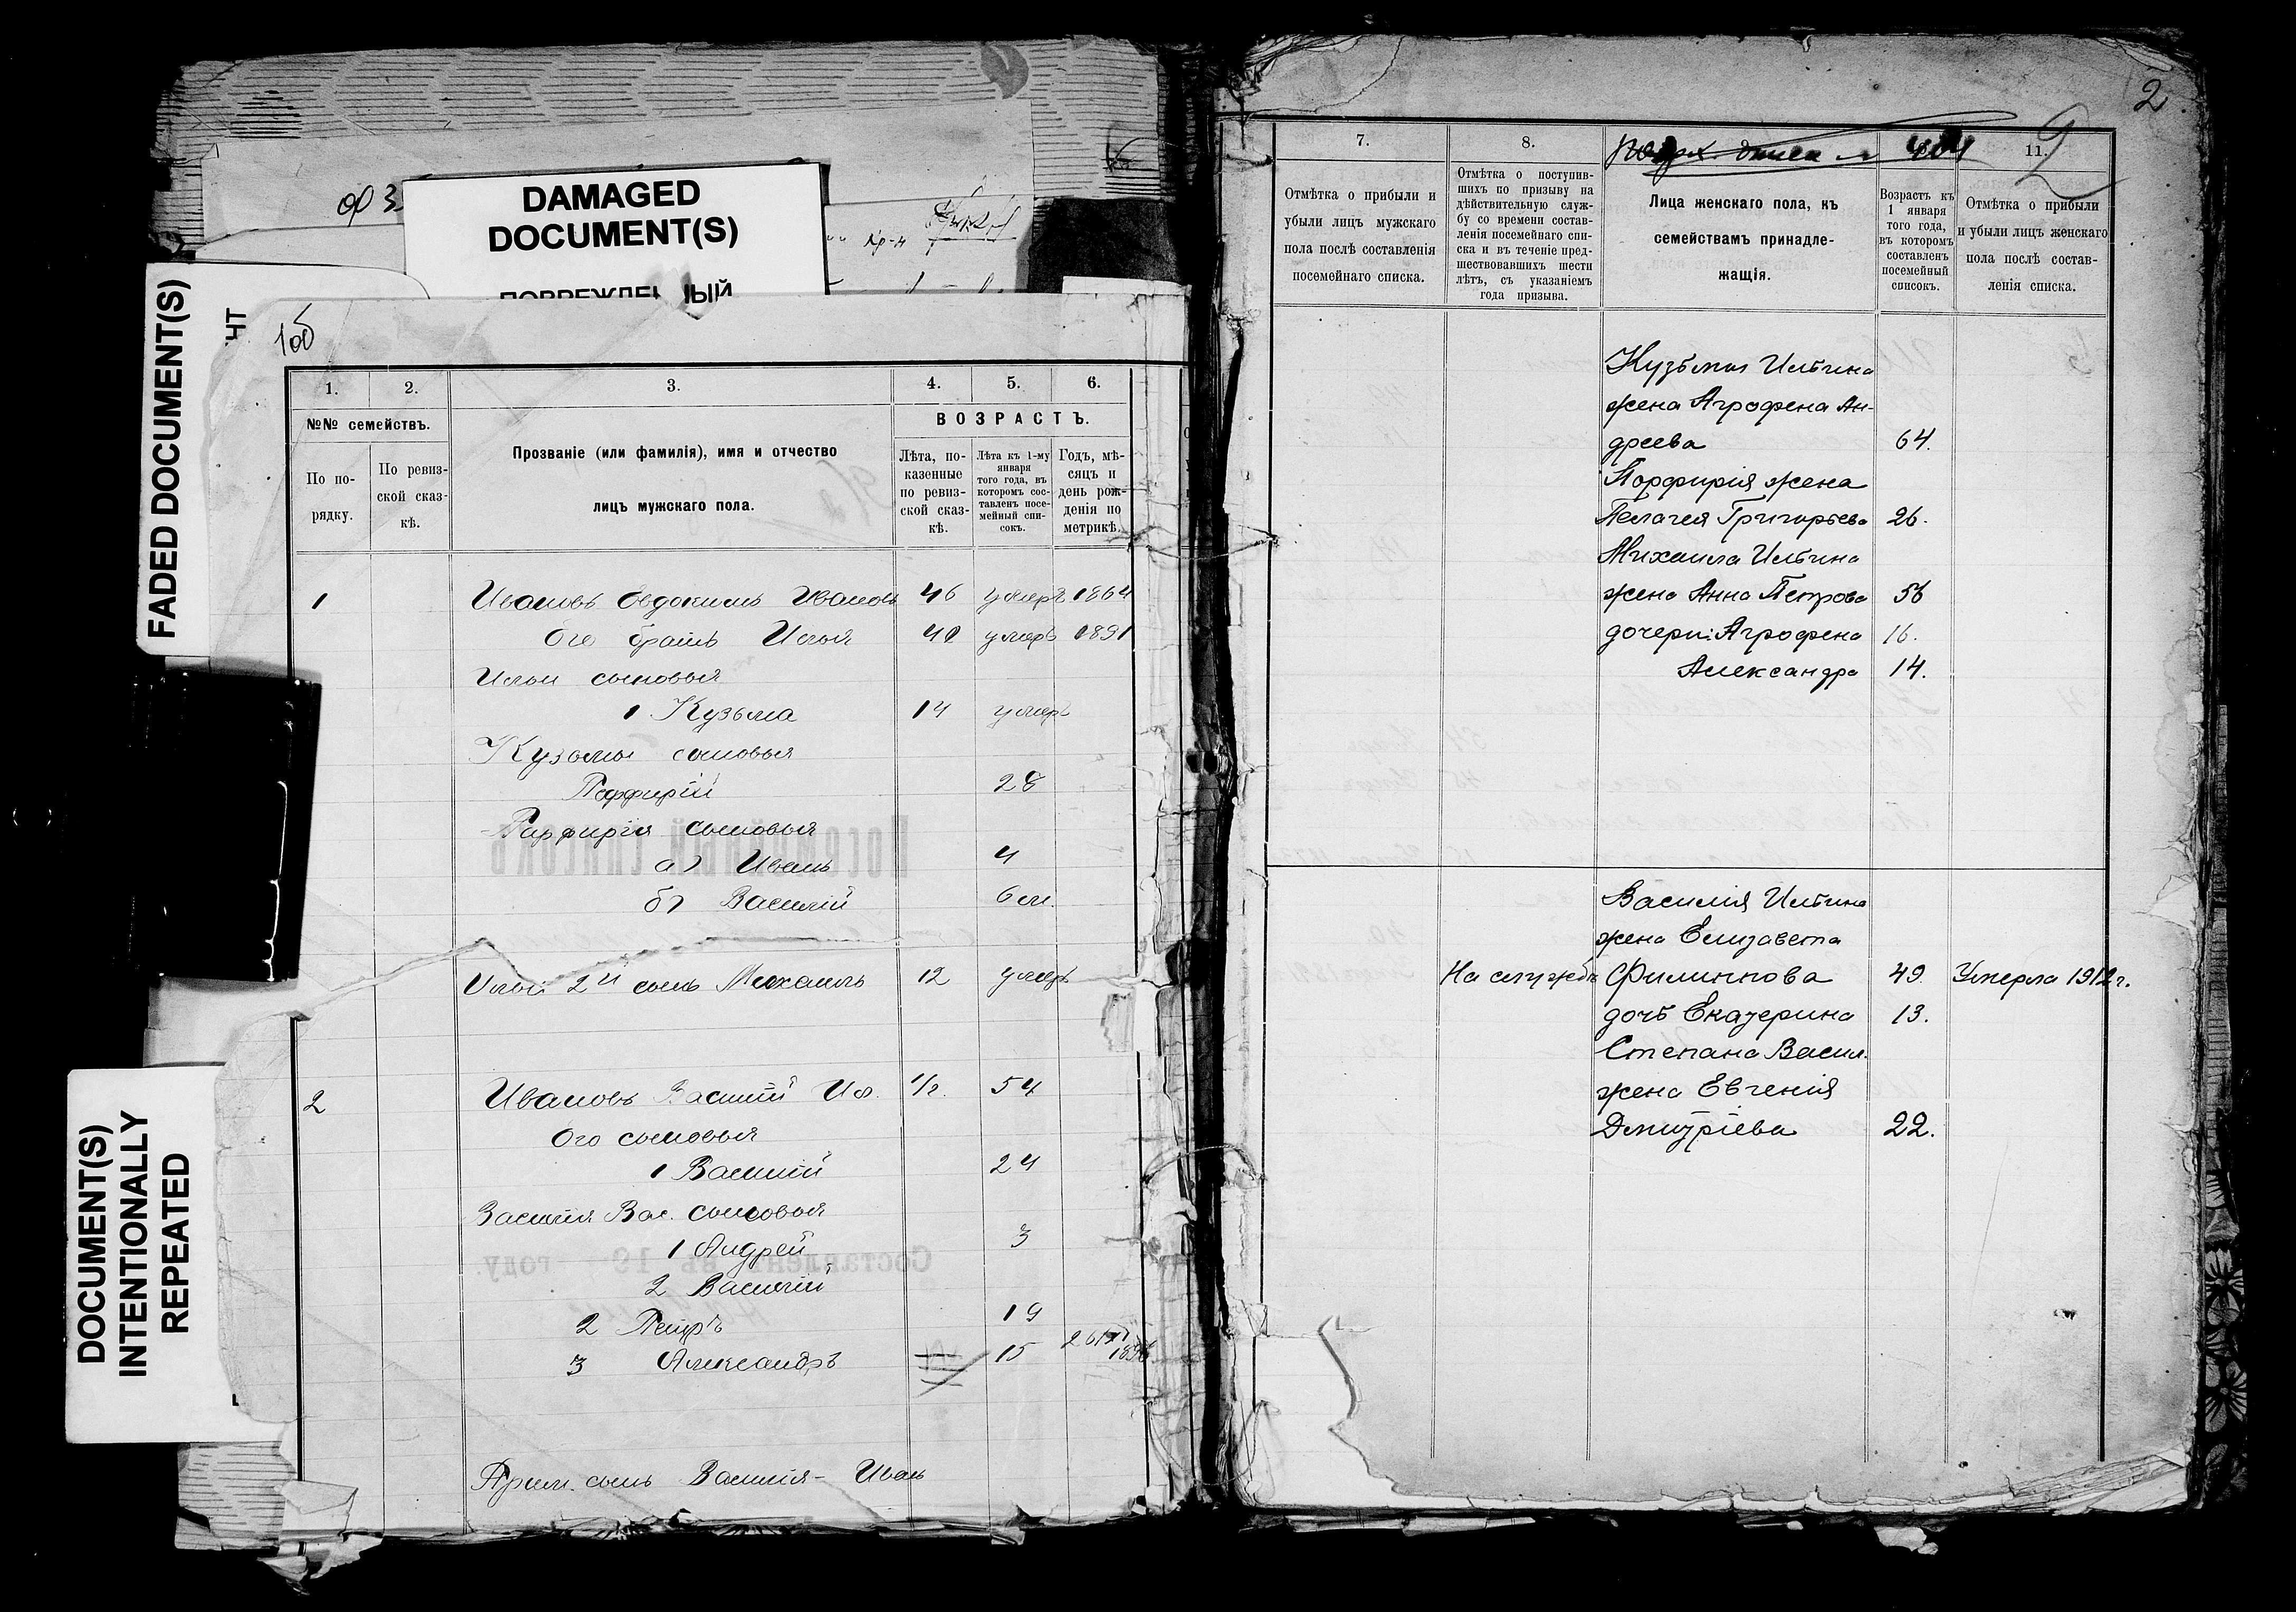 DAMAGED
DOCUMENT(S)
FADED DOCUMENT(S)
DOCUMENT(S)
INTENTIONALLY
REPEATED
1об
1.
2.
3.
4.
5.
6.
№№ семействъ.
По по-
рядку.
По ревиз-
ской сказ-
кѣ.
Прозваніе (или фамилія), имя и отчество
лицъ мужскаго пола.
ВОЗРАСТЪ.
Лѣта, по-
казенные
по ревиз-
ской сказ-
кѣ.
Лѣта къ 1-му
января
того года, въ
которомъ сос-
тавленъ посе-
мейный спи-
сокъ.
Годъ, мѣ-
сяцъ и
день рож-
денія по
метрикѣ.
1 Ивановъ Евдокимъ Ивановъ 46 умеръ 1864
Его братъ Илья 40 умеръ 1891
Ильи сыновья
1 Кузьма 14 умеръ
Кузьмы сыновья
Порфирій 28
Порфирія сыновья
а) Иванъ 4
б) Василій 6 м.
Ильи 2й сынъ Михаилъ 12 умеръ
2 Ивановъ Василій Ил. 1/2. 54
Его сыновья
1 Василій 24
Василія Вас. сыновья
1 Андрей 3
2 Василій
2 Петръ 19
3 Александръ 15
Прим. сынъ Василія - Иванъ
2
7.
8.
11.
Отмѣтка о прибыли и
убыли лицъ мужскаго
пола послѣ составленія
посемейнаго списка.
Отмѣтка о поступив-
шихъ по призыву на
дѣйствительную служ-
бу со времени состав-
ленія посемейнаго спи-
ска и въ теченіе пред-
шествовавшихъ шести
лѣтъ, съ указаніемъ
года призыва.
Лица женскаго пола, къ
семействамъ принадле-
жащія.
Возрастъ къ
1 января
того года,
въ которомъ
составленъ
посемейный
списокъ.
Отмѣтка о прибыли
и убыли лицъ женскаго
пола послѣ состав-
ленія списка.
Кузьмы Ильина
жена Агрофена Ан-
дреева 64.
Порфирія жена
Пелагея Григорьева 26.
Михаила Ильина
жена Анна Петрова 56
дочери: Агрофена 16.
Александра 14.
Василія Ильина
жена Елизавета
На службѣ Филиппова 49. Умерла 1912 г.
дочь Екатерина 13.
Степана Васил.
жена Евгенія
Дмитріева 22.